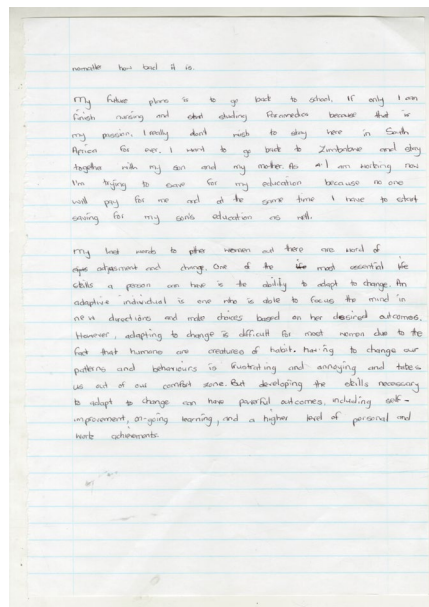 nomatter how bad it is.
My future plans is to go back to school, If only I can
finish nursing and start studing Paramedics because that is
my passion. I really dont wish to stay here in South
Africa for ever. I want to go back to Zimbabwe and stay
together with my son and my mother. As I am working now
I'm trying to save for my education because no one
will pay for me and at the same time I have to start
saving for my son's education as well.
My last words to other women out there are word of
adjusment and change. One of the most essential life
skills a person can have is the ability to adapt to change. An
adaptive individual is one who is able to focus the mind in
new directions and make choices based on her desired outcomes.
However, adapting to change is difficult for most women due to the
fact that humans are creatures of habit. Having to change our
patterns and behaviours is frustrating and annoying and takes
us out of our comfort zone. But developing the skills necessary
to adapt to change can have powerful outcomes, including self-
improvement, on-going learning, and a higher level of personal and
work achievements.